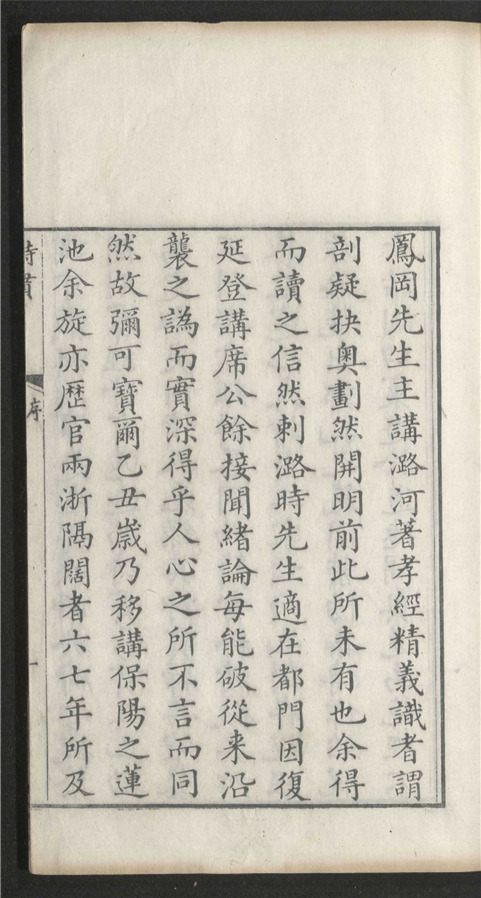 鳳岡先生主講潞河著孝經精義識者謂
剖疑抉奧劃然開明前此所未有也余得
而讀之信然刺潞時先生適在都門因復
延登講席公餘接聞緒論每能破從来沿
襲之譌而實深得乎人心之所不言而同
然故彌可寶爾乙丑歲乃移講保陽之蓮
池余旋亦歷官兩浙隔闊者六七年所及
詩貫
序
一